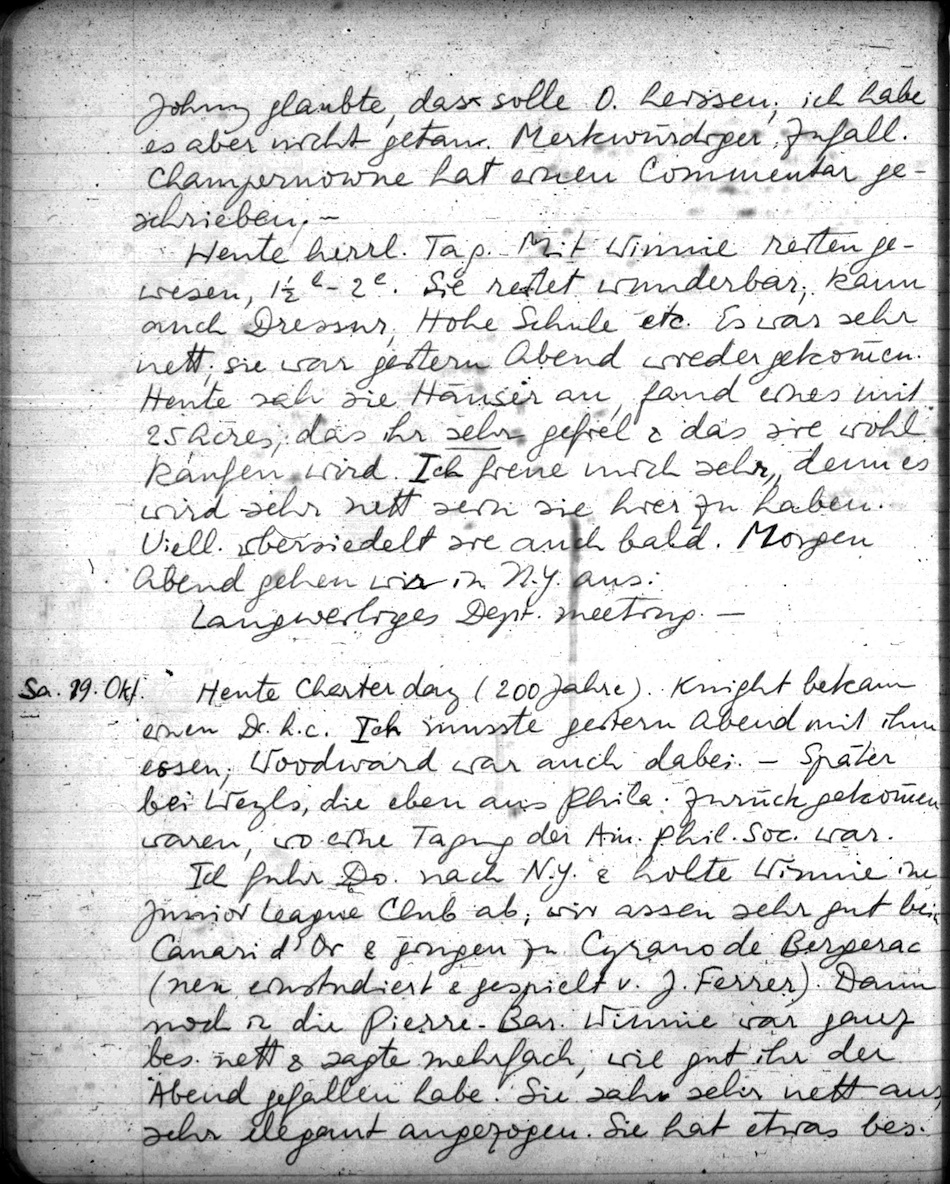 Johnny glaubte, dass solle O. heissen; ich habe
es aber nicht getan. Merkwürdiger Zufall.
Champernowne hat einen Commentar ge-
schrieben. –
Heute herrl. Tag. Mit Winnie reiten ge-
wesen, 1½ - 2. Sie reitet wunderbar; kann
auch Dressur, Hohe Schule etc. Es war sehr
nett; sie war gestern Abend wiedergekommen.
Heute sah sie Häuser an, fand eines mit
25 Acres, das ihr sehr gefiel & das sie wohl
kaufen wird. Ich freue mich sehr, denn es
wird sehr nett sein sie hier zu haben.
Viell. übersiedelt sie auch bald. Morgen
Abend gehen wir in N.Y. aus.
Langweiliges Dept. meeting. –
Sa. 19. Okt. Heute Charter day (200 Jahre). Knight bekam
einen Dr. h.c. Ich musste gestern Abend mit ihm
essen; Woodward war auch dabei. – Später
bei Weyls, die eben aus Phila. zurückgekommen
waren, wo eine Tagung der Am. Phil. Soc. war.
Ich fuhr Do. nach N.Y. & holte Winnie im
Junior League Club ab; wir assen sehr gut bei
Canari d'Or & gingen zu Cyrano de Bergerac
(neu einstudiert & gespielt v. J. Ferrer). Dann
noch in die Pierre-Bar. Winnie war ganz
bes. nett & sagte mehrfach, wie gut ihr der
Abend gefallen habe. Sie sah sehr nett aus,
sehr elegant angezogen. Sie hat etwas bes.